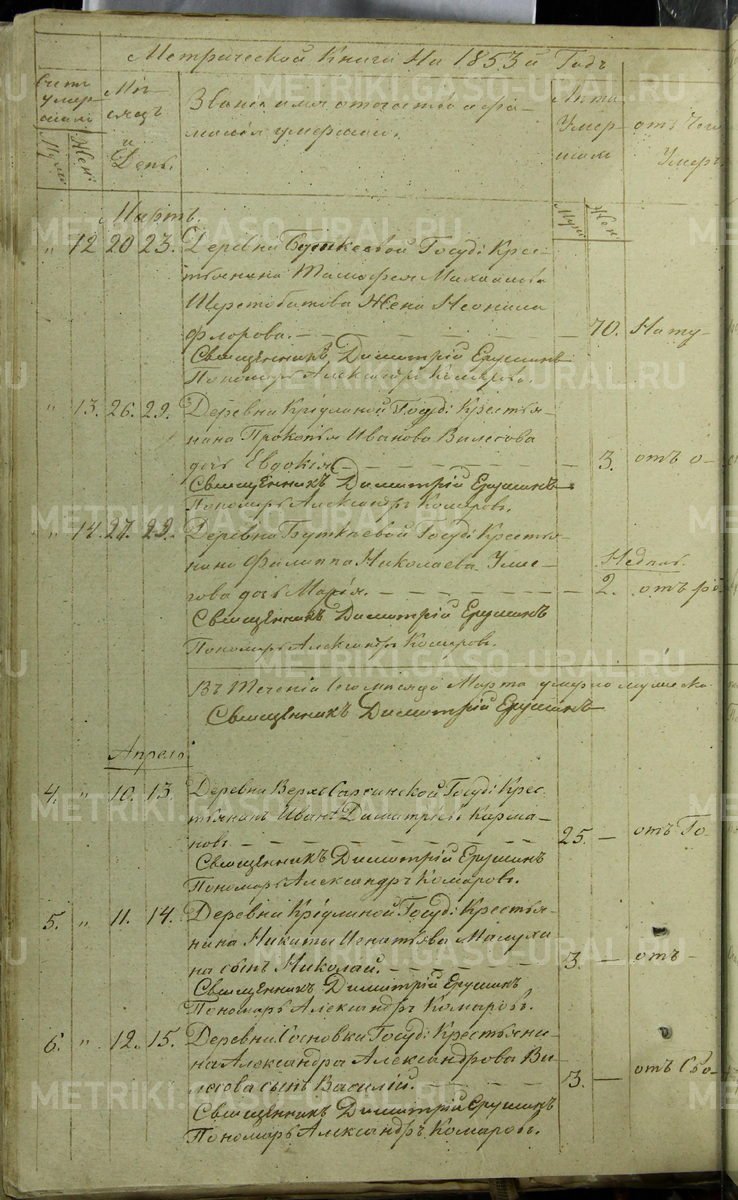 Метрической Книги На 1853й Годъ
Счетъ умершихъ
Муж. Жен.
Месяцъ и День.
Званіе имя отчество и фамилія умершихъ.
Лета Умершихъ
Муж. Жен.
отъ чего Умеръ
Мартъ.
" 12 20 23. Деревни Буткеевой Госуд: Крес-
тьянина Тимофея Михайлова
Жена Неонила
Флорова. 70. Нату-
Священникъ Димитрій Ерушинъ
Пономарь Александръ Комаровъ.
" 13. 26. 29. Деревни Госуд: Крестья-
нина Прокопья Иванова Вилесова
дочь Евдокія 3. отъ о-
Священникъ Димитрій Ерушинъ
Пономарь Александръ Комаровъ.
" 14. 27. 29. Деревни Буткеевой Госуд: Крестья-
нина Филиппа Николаева
дочь Марія. Недель. 2. отъ ро-
Священникъ Димитрій Ерушинъ
Пономарь Александръ Комаровъ.
Въ теченіи сего месяца Марта умерло мужеска
Священникъ Димитрій Ерушинъ
Апрель
4. " 10. 13. Деревни Верхъ Сарсинской Госуд: Крес-
тьянинъ Иванъ Димитріевъ Карма-
новъ 25. — отъ Го-
Священникъ Димитрій Ерушинъ
Пономарь Александръ Комаровъ.
5. " 11. 14. Деревни Госуд: Крестья-
нина Никиты Игнатьева Малухи-
на сынъ Николай. 3. — отъ -
Священникъ Димитрій Ерушинъ
Пономарь Александръ Комаровъ.
6. " 12. 15. Деревни Сосновки Госуд: Крестьяни-
на Александра Александрова Ви-
лесова сынъ Василій. 3. — отъ Сво-
Священникъ Димитрій Ерушинъ
Пономарь Александръ Комаровъ.
METRIKI.GASO-URAL.RU